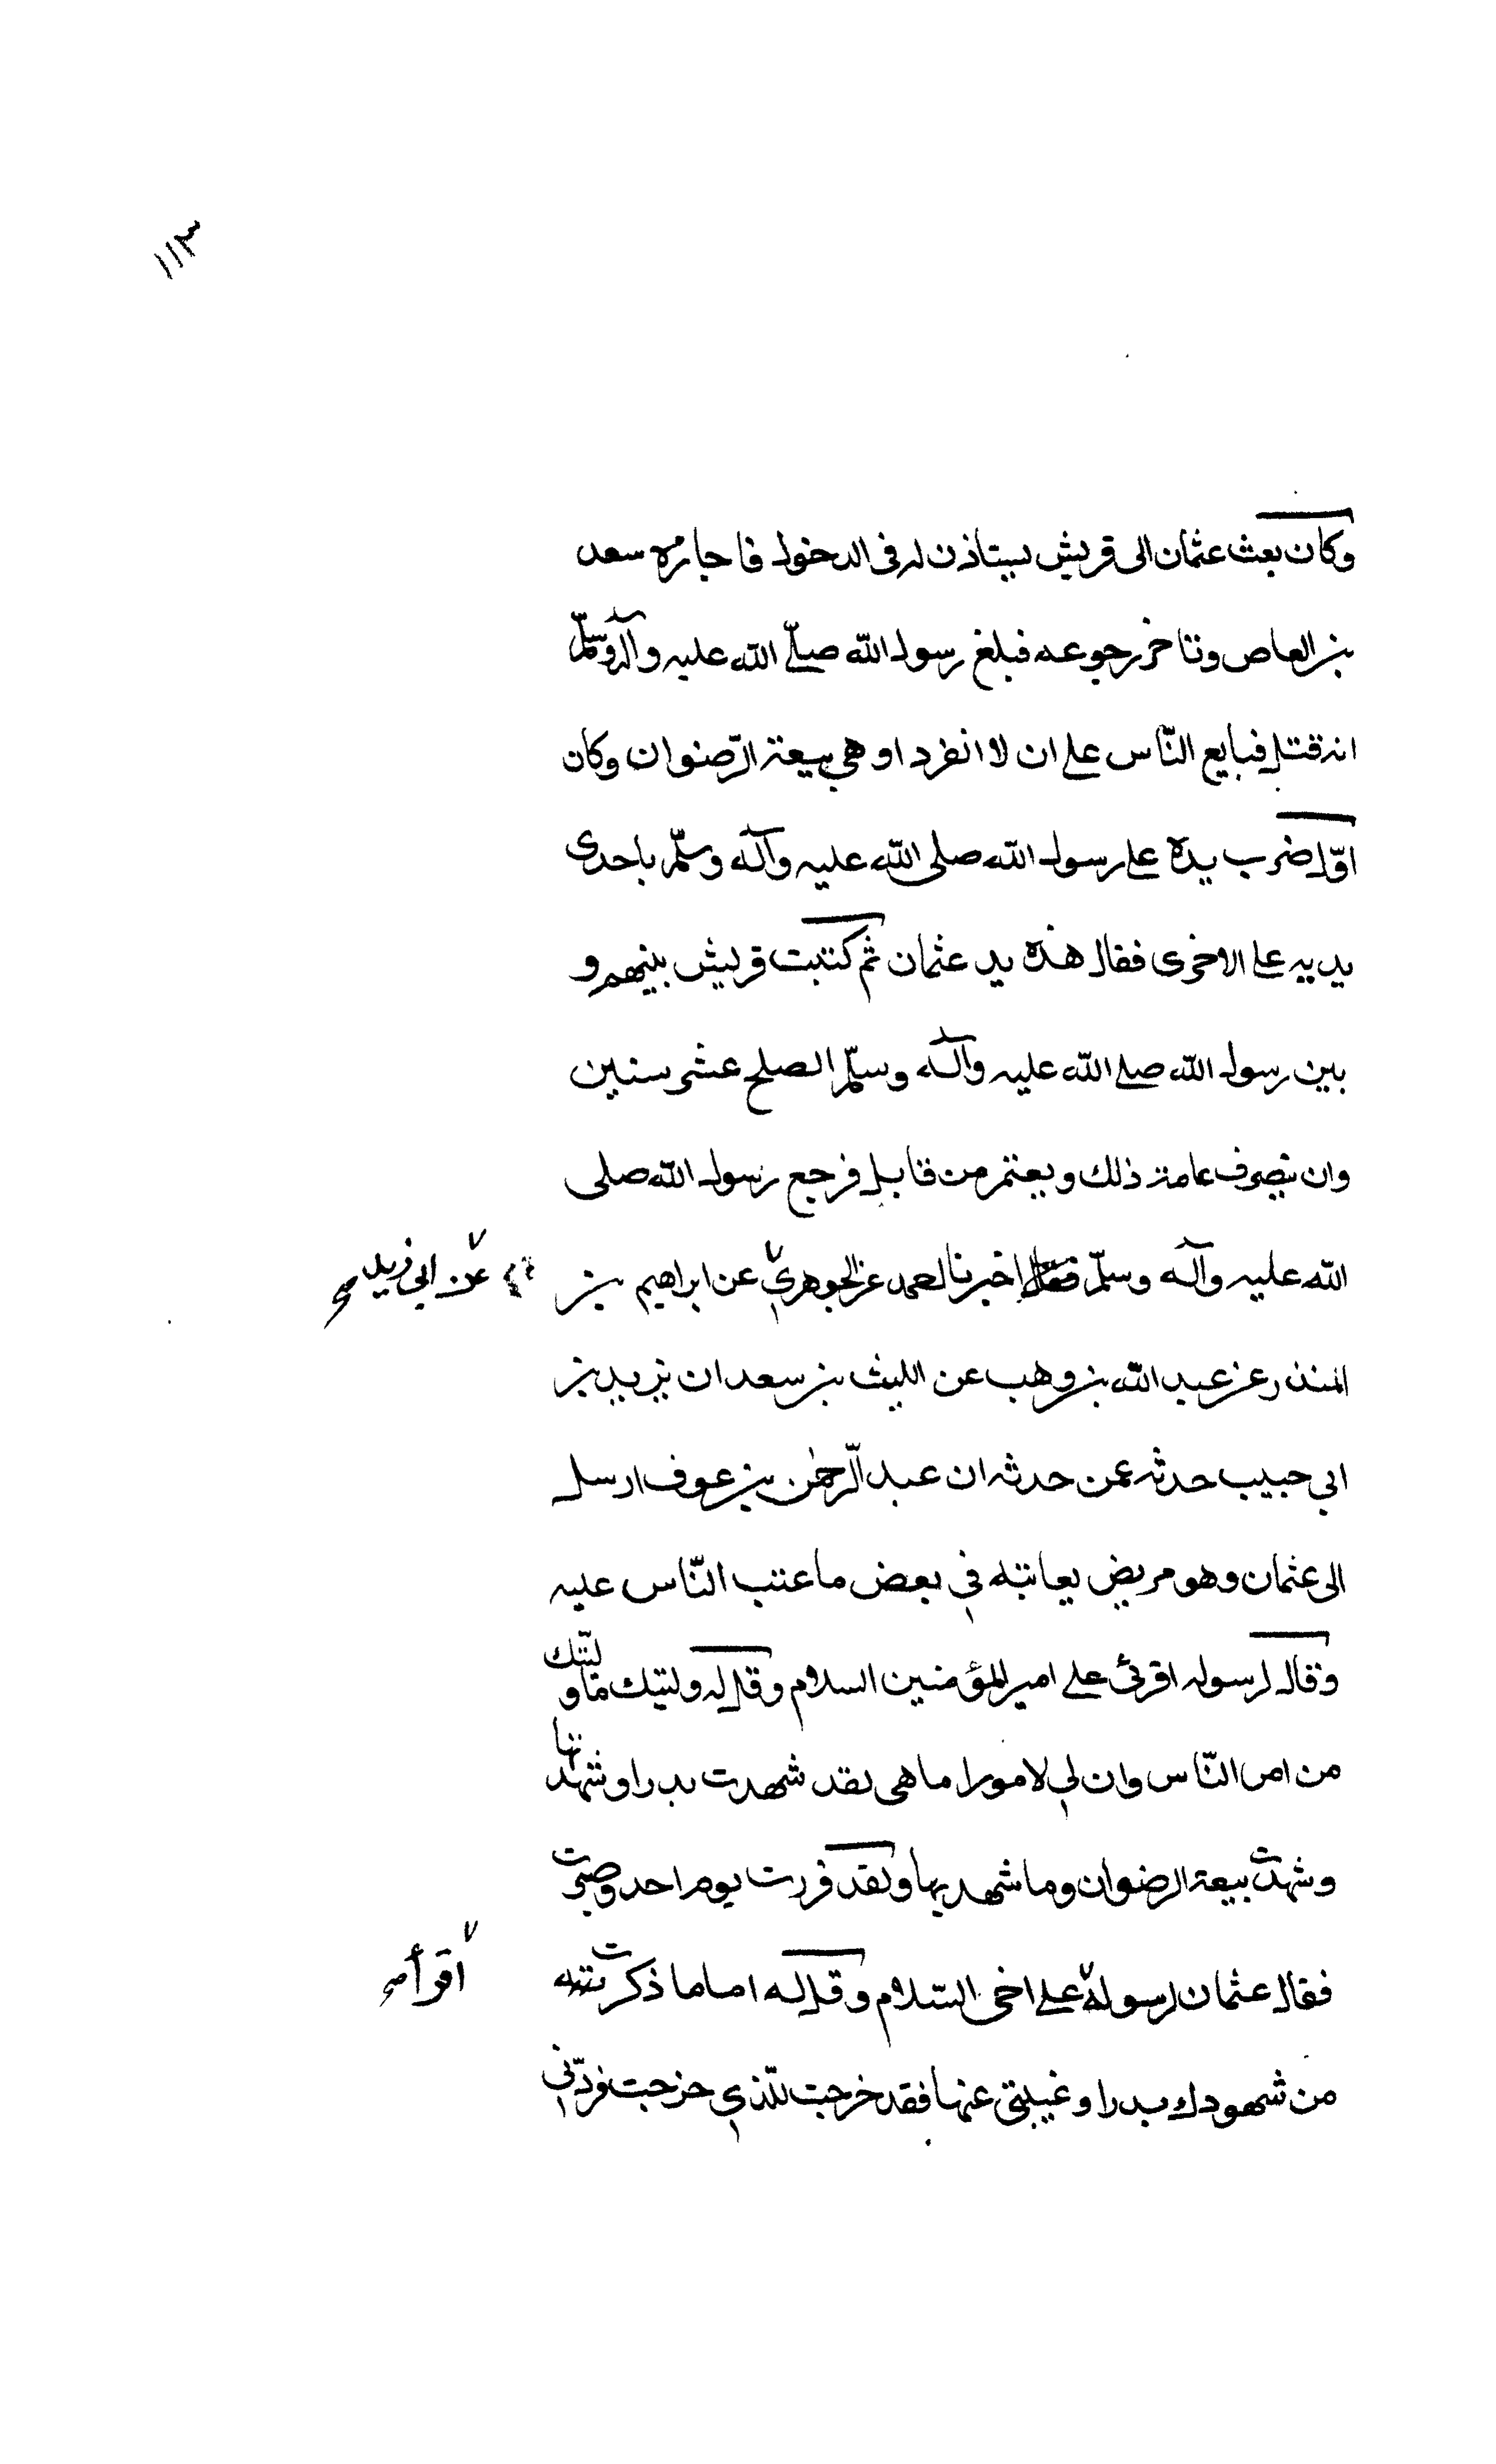 ١١٣
وكان بعث عثمان الى قريش ليستاذن له فى الدخول فاجاره سعد
بن العاص وتاخر رجوعه فبلغ رسول الله صلّى الله عليه وآله وسلّم
انه قتل فبايع النّاس على ان لا انفرد او هي بيعة الرّضوان وكان
اوّل ضرب يده على رسول الله صلى الله عليه وآله وسلّم باحدى
يديه على الاخرى فقال هذه يد عثمان ثم كتبت قريش بينهم و
بين رسول الله صلى الله عليه وآله وسلّم الصلح عشر سنين
وان ينصرف عامة ذلك ويعتمر من قابل فرجع رسول الله صلى
الله عليه وآله وسلّم اخبرنا لعمد عن الجوهرى عن ابراهيم بن
عن ابي زيد صح
المنذر عن عبد الله بن وهب عن الليث بن سعد ان يزيد بن
ابي حبيب حدثه عمن حدثه ان عبد الرّحمٰن بن عوف ارسل
الى عثمان وهو مريض يعاتبه في بعض ما عتب النّاس عليه
وقال لرسوله اقرئ على امير المؤمنين السلام وقل له وليتك ما و
ليتك
من امر النّاس وان لي لامورا ما هى لقد شهدت بدرا وشهدتها
وشهدت بيعة الرضوان وما شهدتها ولقد فررت يوم احد وصبرت
فقال عثمان لرسوله على اخى السّلام وقل له اما ما ذكرت
اقرأ صح
من شهودك بدرا وغيبتي عنها فقد خرجت للّذي خرجت فردّني